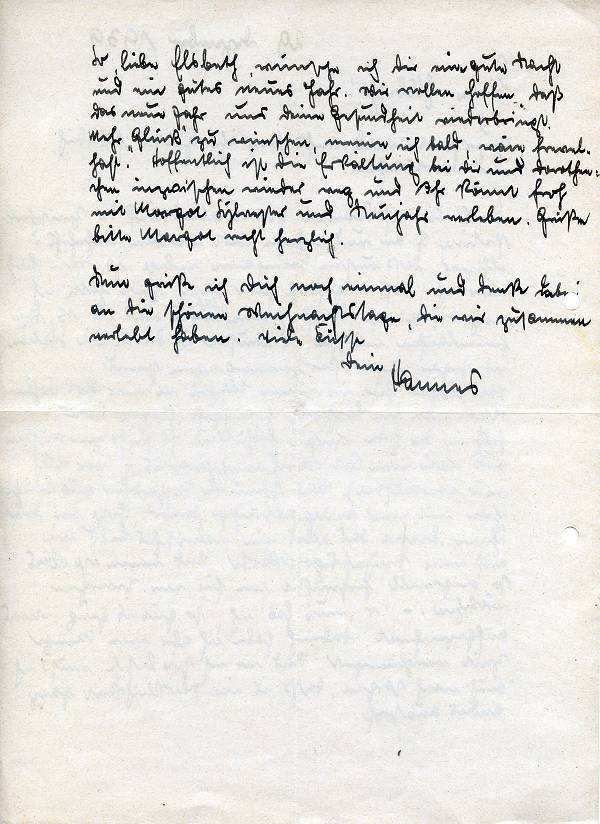 So, liebe Elsbeth, wünsche ich Dir eine gute Nacht
und ein gutes neues Jahr. Wir wollen hoffen, daß
das neue Jahr uns deine Gesundheit wiederbringt.
Mehr Glück zu wünschen, meine ich bald wäre frevel-
haft. Hoffentlich ist die Erkältung bei dir und Dorothe-
chen inzwischen wieder weg und Ihr könnt froh
mit Margot Sylvester und Neujahr verleben. Grüße
bitte Margot recht herzlich.
Nun grüße ich Dich noch einmal und denke dabei
an die schönen Weihnachtstage, die wir zusammen
verlebt haben. Viele Küsse
Dein
Hannes